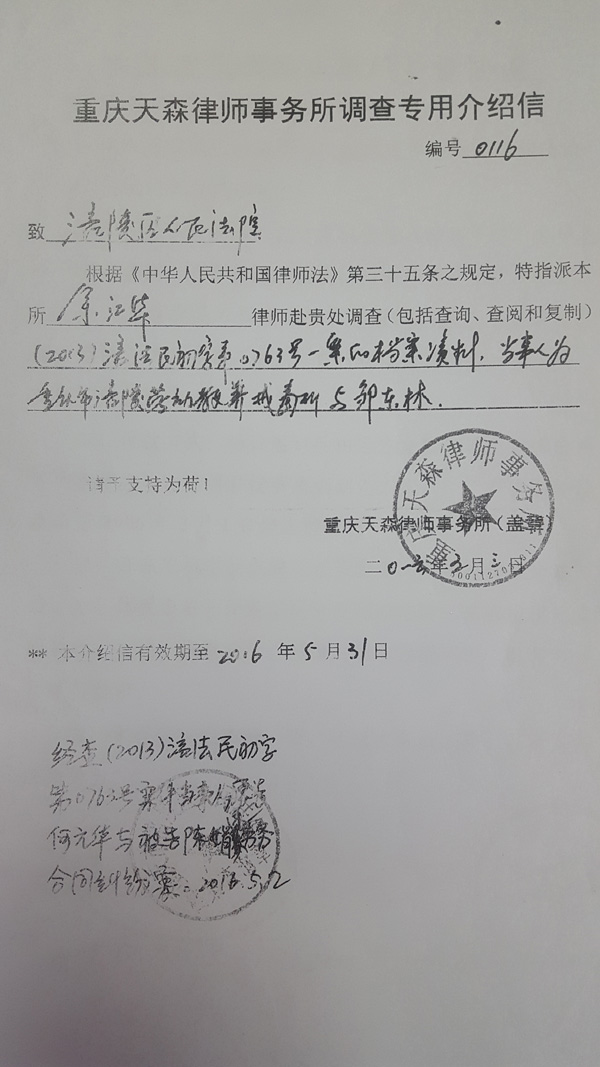 重庆天森律师事务所调查专用介绍信
编号 0116
致 涪陵区人民法院
根据《中华人民共和国律师法》第三十五条之规定，特指派本
所 余江华 律师赴贵处调查（包括查询、查阅和复制）
(2013)涪法民初字第0763号一案的档案资料，当事人为
重庆市涪陵 与邹东林.
请予支持为荷！
天森律师事务所
重庆天森律师事务所（盖章）
二0一六年五月三日
** 本介绍信有效期至 2016 年 5 月 31 日
经查(2013)涪法民初字
第0763号案件当事人原告
何元华与被告陈
合同纠纷案. 2016.5.12